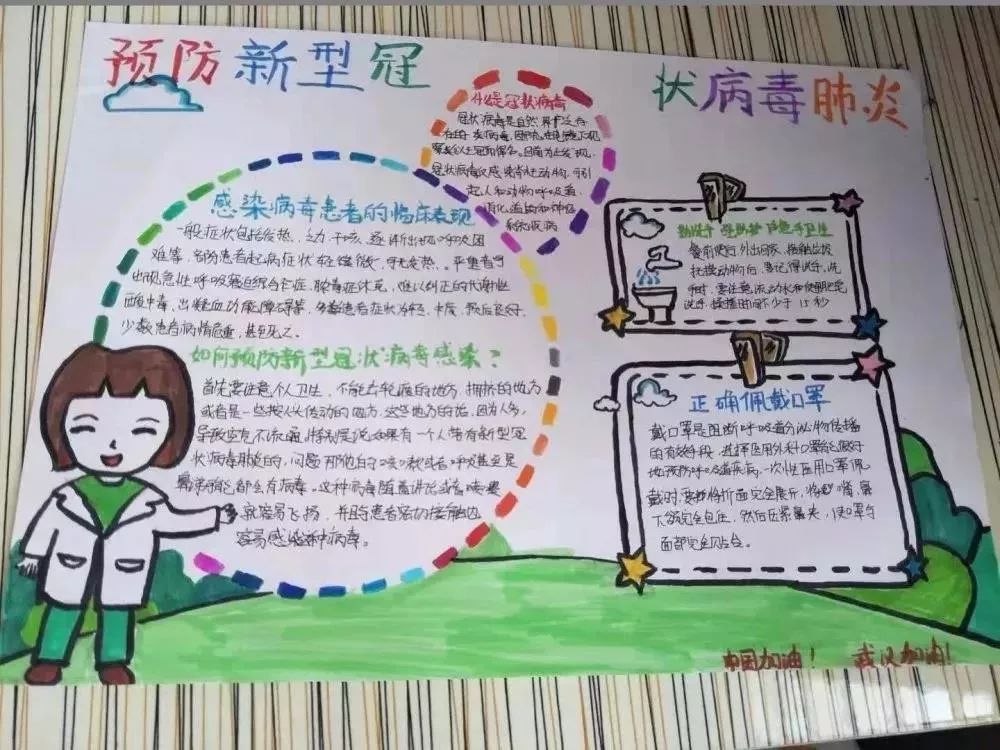 预防新型冠状病毒肺炎
什么是冠状病毒
冠状病毒是自然界广泛存
在的一类病毒,因
冠状病毒仅感染脊椎动物,可引
起人和动物呼吸道、
消化道和神经
系统疾病
感染病毒患者的临床表现
一般症状包括发热、乏力、干咳、逐渐出现呼吸困
难等,部分患者起病症状轻微,无发热。严重者
出现急性呼吸窘迫综合征、脓毒症休克、难以纠正的代谢性
酸中毒、出凝血功能障碍等。多数患者症状 预后良好,
少数患者病情危重,甚至死亡。
如何预防新型冠状病毒感染?
首先要注意个人卫生,不能去轮流的地方,拥挤的地方
或者是一些 的地方,这些地方的话,因为人多,
导致空气不流通,特别是说如果有一个人带有新型冠
状病毒肺炎的,问题 他的咳嗽或者呼吸甚至是
都会有病毒。这种病毒随着讲话或者咳嗽
就容易飞扬,并与患者密切接触也
容易感染这种病毒。
勤洗手
餐前便后,外出回家,接触垃圾
抚摸动物后,要记得洗手,洗
手时,要注意流动水和使用肥皂
洗手,揉搓时间不少于15秒
正确佩戴口罩
戴口罩是阻断呼吸道分泌物传播
的有效手段,选择医用外科口罩能很好
地预防呼吸道疾病,一次性医用口罩佩
戴时,要将折面完全展开,将嘴、鼻
下颌完全包住,然后压紧鼻夹,使口罩与
面部完全贴合。
中国加油! 武汉加油!